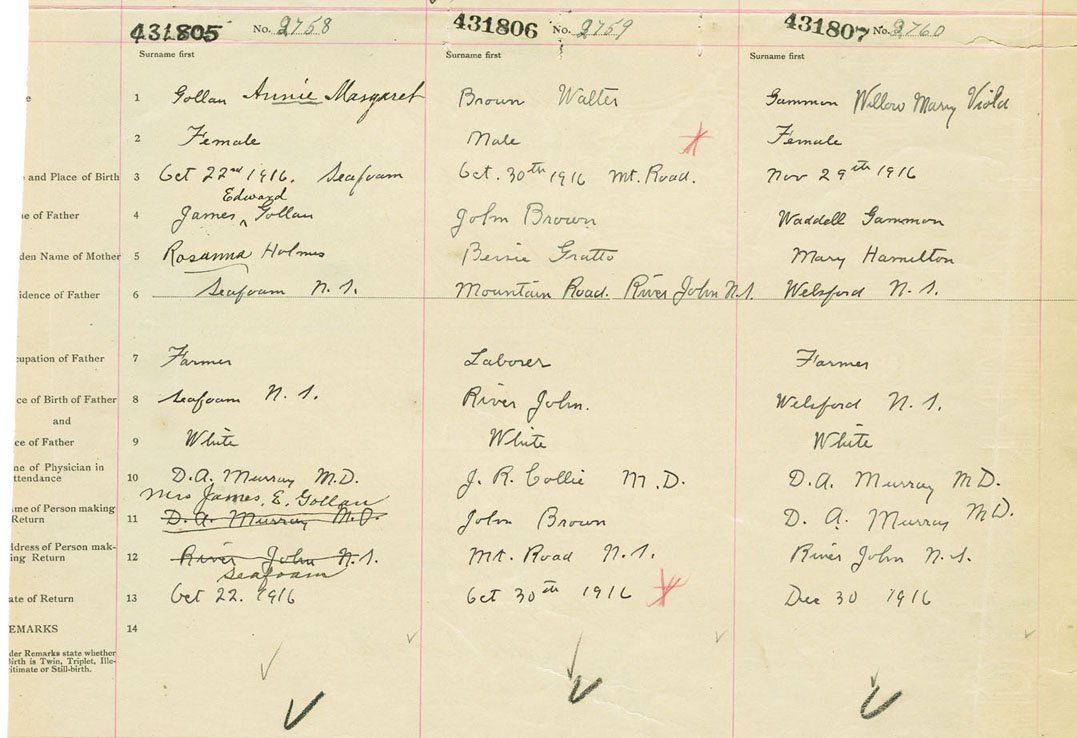 431805 No. 2758 431806 No. 2759 431807 No. 2760
Surname first Surname first Surname first
e 1 Gollan Annie Margaret Brown Walter Gammon Willow Mary Viola
2 Female Male Female
and Place of Birth 3 Oct 22nd 1916. Seafoam Oct. 30th 1916 Mt. Road. Nov 29th 1916
Edward
e of Father 4 James ^ Gollan John Brown Waddell Gammon
den Name of Mother 5 Rosanna Holmes Bessie Gratto Mary Hamilton
idence of Father 6 Seafoam N.S. Mountain Road. River John N.S. Welsford N.S.
cupation of Father 7 Farmer Laborer Farmer
ce of Birth of Father 8 Seafoam N.S. River John. Welsford N.S.
and
ce of Father 9 White White White
ne of Physician in
ttendance 10 D.A. Murray M.D. J. R. Collie M.D. D.A. Murray M.D.
Mrs James. E. Gollan
ame of Person making
Return 11 D.A. Murray M.D. John Brown D. A. Murray M.D.
ddress of Person mak-
ing Return 12 River John N.S. Mt. Road N.S. River John N.S.
Seafoam
ate of Return 13 Oct 22. 1916 Oct 30th 1916 Dec 30 1916
EMARKS 14
der Remarks state whether
Birth is Twin, Triplet, Ille-
itimate or Still-birth.